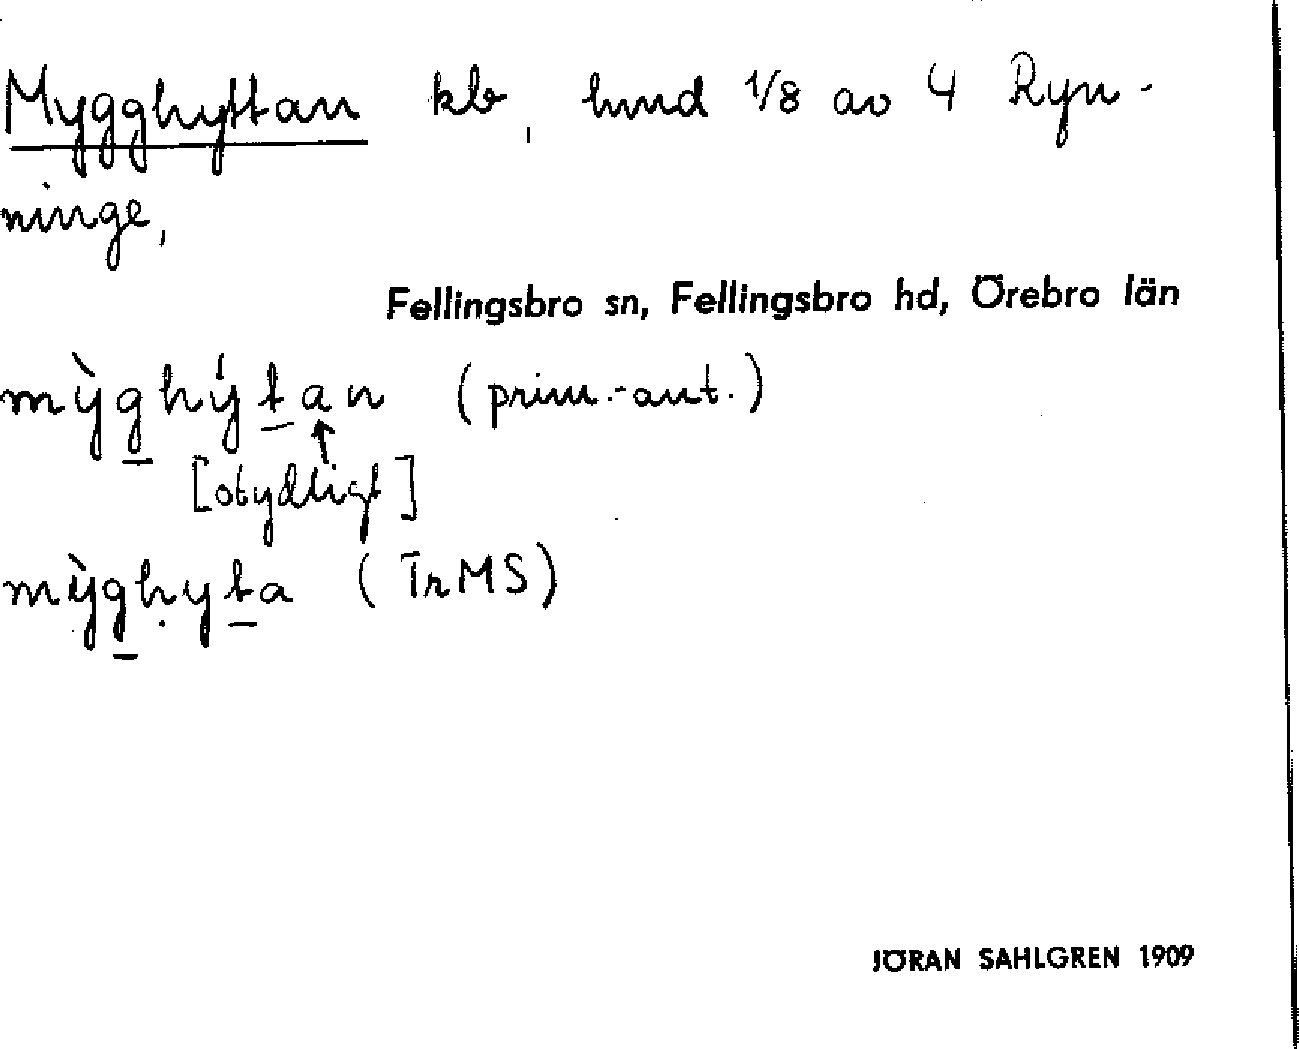 Mygghyttan kb, hmd 1/8 av 4 Ryn-
ninge,
Fellingsbro sn, Fellingsbro hd, Örebro län
mỳghýtan (prim.-ant.)
[otydligt]
mỳgḥyta (TrMS)
JÖRAN SAHLGREN 1909